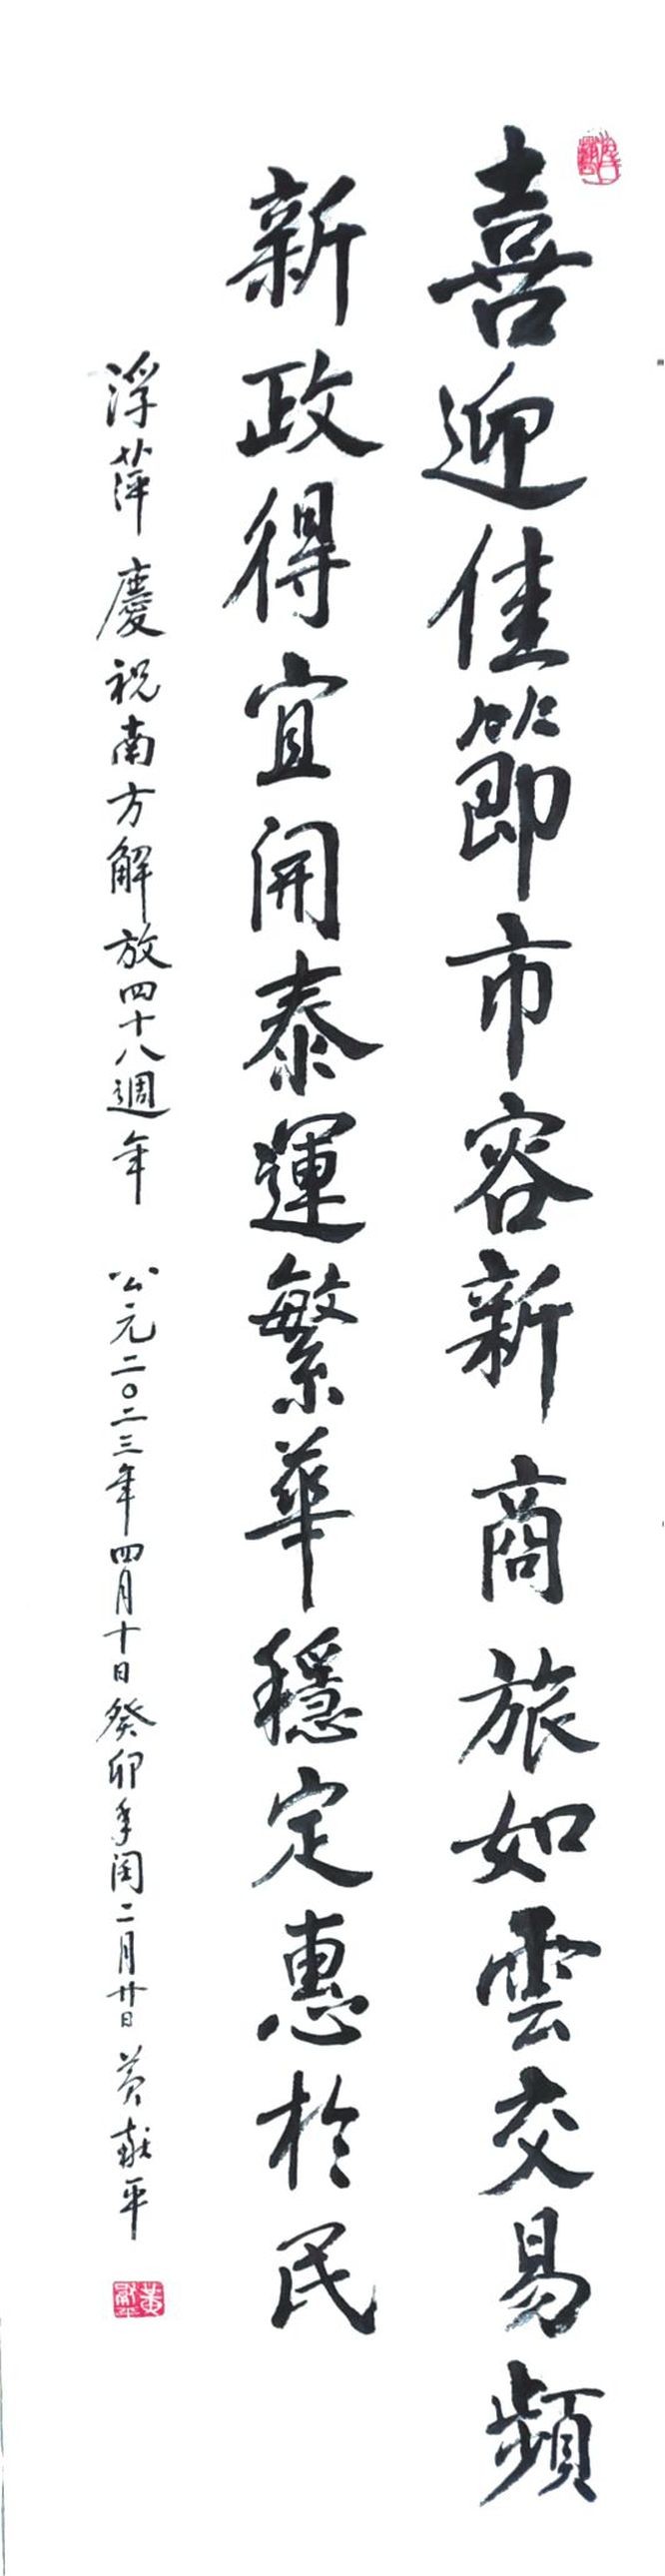 喜迎佳節市容新商旅如雲交易頻
新政得宜開泰運繁華穩定惠於民
浮萍 慶祝南方解放四十八週年 公元二〇二三年四月十日癸卯年閏二月廿日 黃獻平